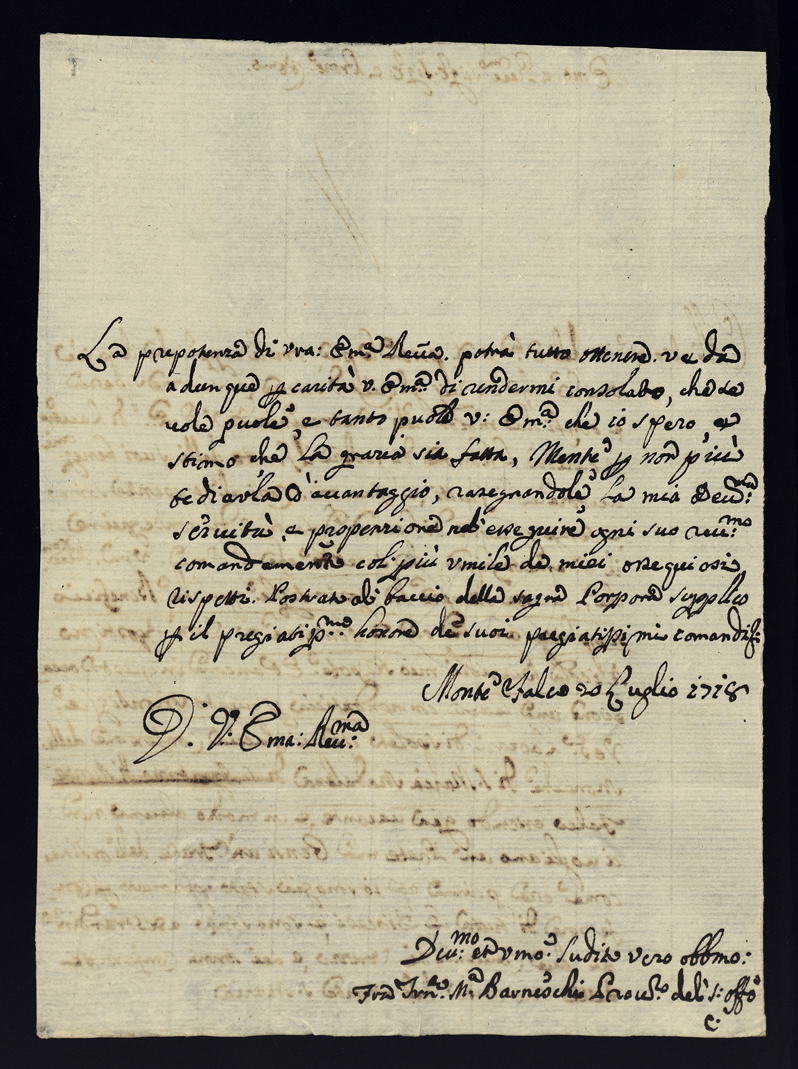 La prepotenza di vra: Em.a Reu.a potrà tutto ottenere. v e da
adunque p carità v. Em.a di rendermi consolato, che se
uole puole, e tanto puole v: Em.a che io spero e
stimo che la grazia sia fatta, Mentre p non più
tediarla d'auantaggio, rasegnandole la mia Deu.ma
seruitù, e propenzione nel'esseguire ogni suo reu.mo
comandamento col più vmile de miei ossequiosi
rispetti. Postrato al baccio della sagra Porpora supplico
p il pregiatiss.mo honore de suoi pregiatissimi comandi
Monte Falco 20 Luglio 1718
D. V. Ema: Reu.ma
Deu.mo et vmo: Sudito vero obbmo:
Fra M.a del S. Offo